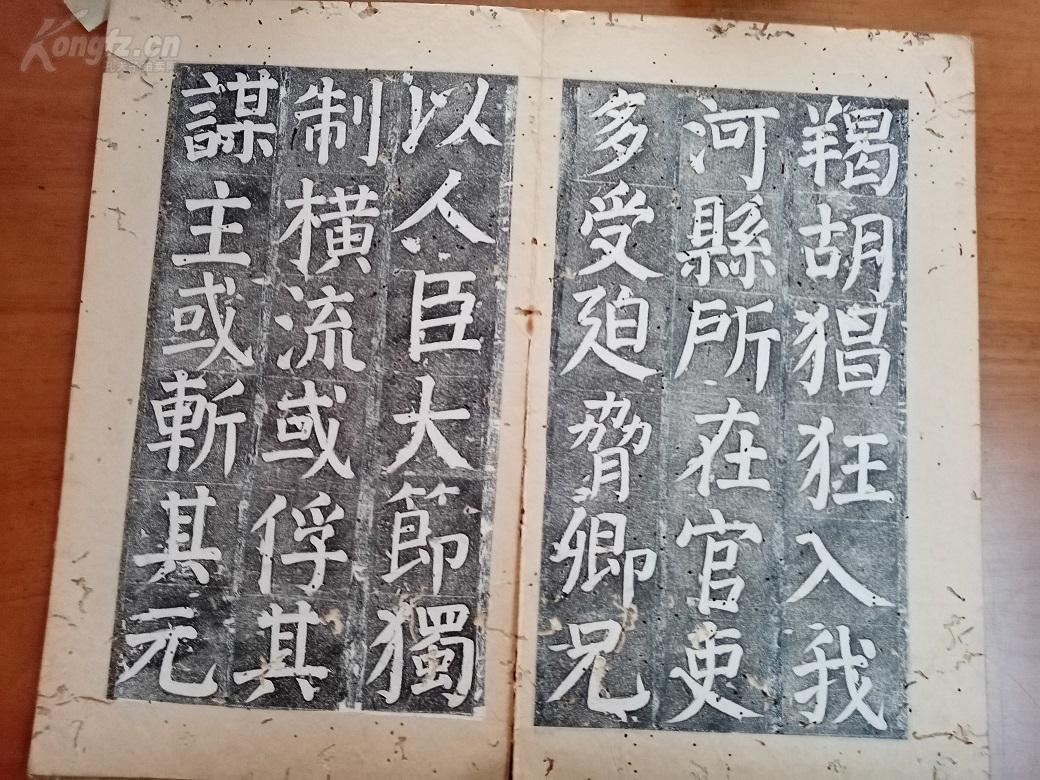 羯胡猖狂入我
河縣所在官吏
多受廹脅卿兄
以人臣大節獨
制橫流或俘其
謀主或斬其元
Kongfz.cn